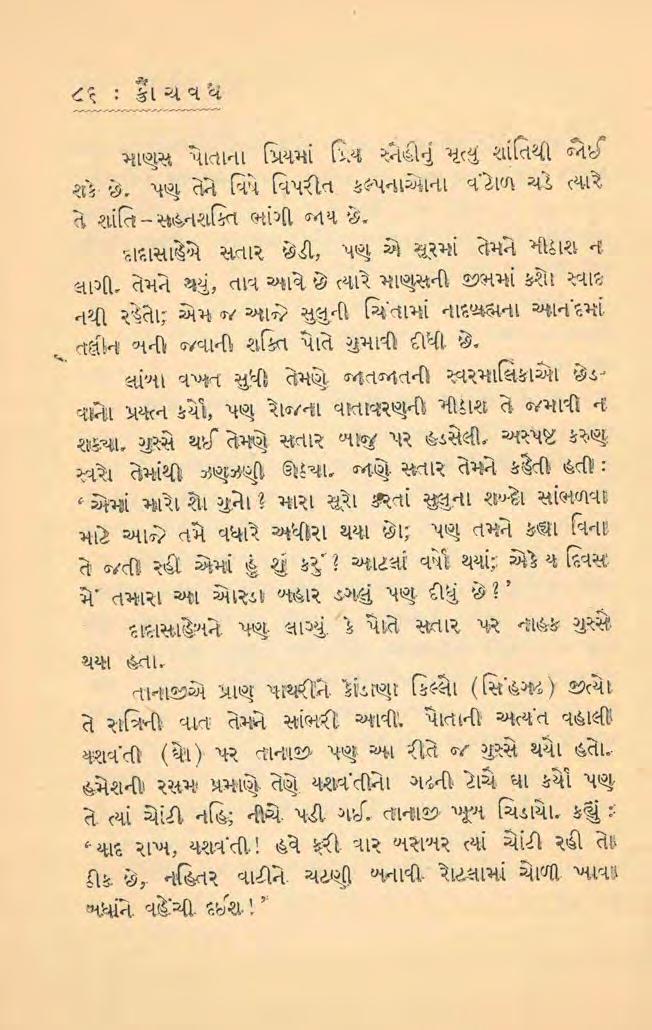 ૮૬ : ક્રૌંચવધ
માણસ પોતાના પ્રિયમાં પ્રિય સ્નેહીનું મૃત્યુ શાંતિથી જોઈ
શકે છે. પણ તેને વિષે વિપરીત કલ્પનાઓના વંટોળ ચડે ત્યારે
તે શાંતિ–સહનશક્તિ ભાંગી જાય છે.
દાદાસાહેબે સતાર છેડી, પણ એ સૂરમાં તેમને મીઠાશ ન
લાગી. તેમને થયું, તાવ આવે છે ત્યારે માણસની જીભમાં કશો સ્વાદ
નથી રહેતો; એમ જ આજે સુલુની ચિંતામાં નાદબ્રહ્મના આનંદમાં
તલ્લીન બની જવાની શક્તિ પોતે ગુમાવી દીધી છે.
લાંબા વખત સુધી તેમણે જાતજાતની સ્વરમાલિકાઓ છેડ-
વાનો પ્રયત્ન કર્યો, પણ રોજના વાતાવરણની મીઠાશ તે જમાવી ન
શક્યા. ગુસ્સે થઈ તેમણે સતાર બાજુ પર હડસેલી. અસ્પષ્ટ કરુણ
સ્વરો તેમાંથી ઝણઝણી ઊઠ્યા. જાણે સતાર તેમને કહેતી હતી :
‘એમાં મારો શો ગુનો? મારા સૂરો કરતાં સુલુના શબ્દો સાંભળવા
માટે આજે તમે વધારે અધીરા થયા છો; પણ તમને કહ્યા વિના
તે જતી રહી એમાં હું શું કરું? આટલાં વર્ષો થયાં; એકે ય દિવસ
મેં તમારા આ ઓરડા બહાર ડગલું પણ દીધું છે?’
દાદાસાહેબને પણ લાગ્યું કે પોતે સતાર પર નાહક ગુસ્સે
થયા હતા.
તાનાજીએ પ્રાણ પાથરીને કોંડાણા કિલ્લો (સિંહગઢ) જીત્યો
તે રાત્રિની વાત તેમને સાંભરી આવી. પોતાની અત્યંત વહાલી
યશવંતી (ઘો) પર તાનાજી પણ આ રીતે જ ગુસ્સે થયો હતો.
હમેશની રસમ પ્રમાણે તેણે યશવંતીનો ગઢની ટોચે ઘા કર્યો પણ
તે ત્યાં ચોંટી નહિ; નીચે પડી ગઈ. તાનાજી ખૂબ ચિડાયો. કહ્યું :
‘યાદ રાખ, યશવંતી! હવે ફરી વાર બરાબર ત્યાં ચોંટી રહી તો
ઠીક છે, નહિતર વાટીને ચટણી બનાવી રોટલામાં ચોળી ખાવા
બધાંને વહેંચી દઈશ!’